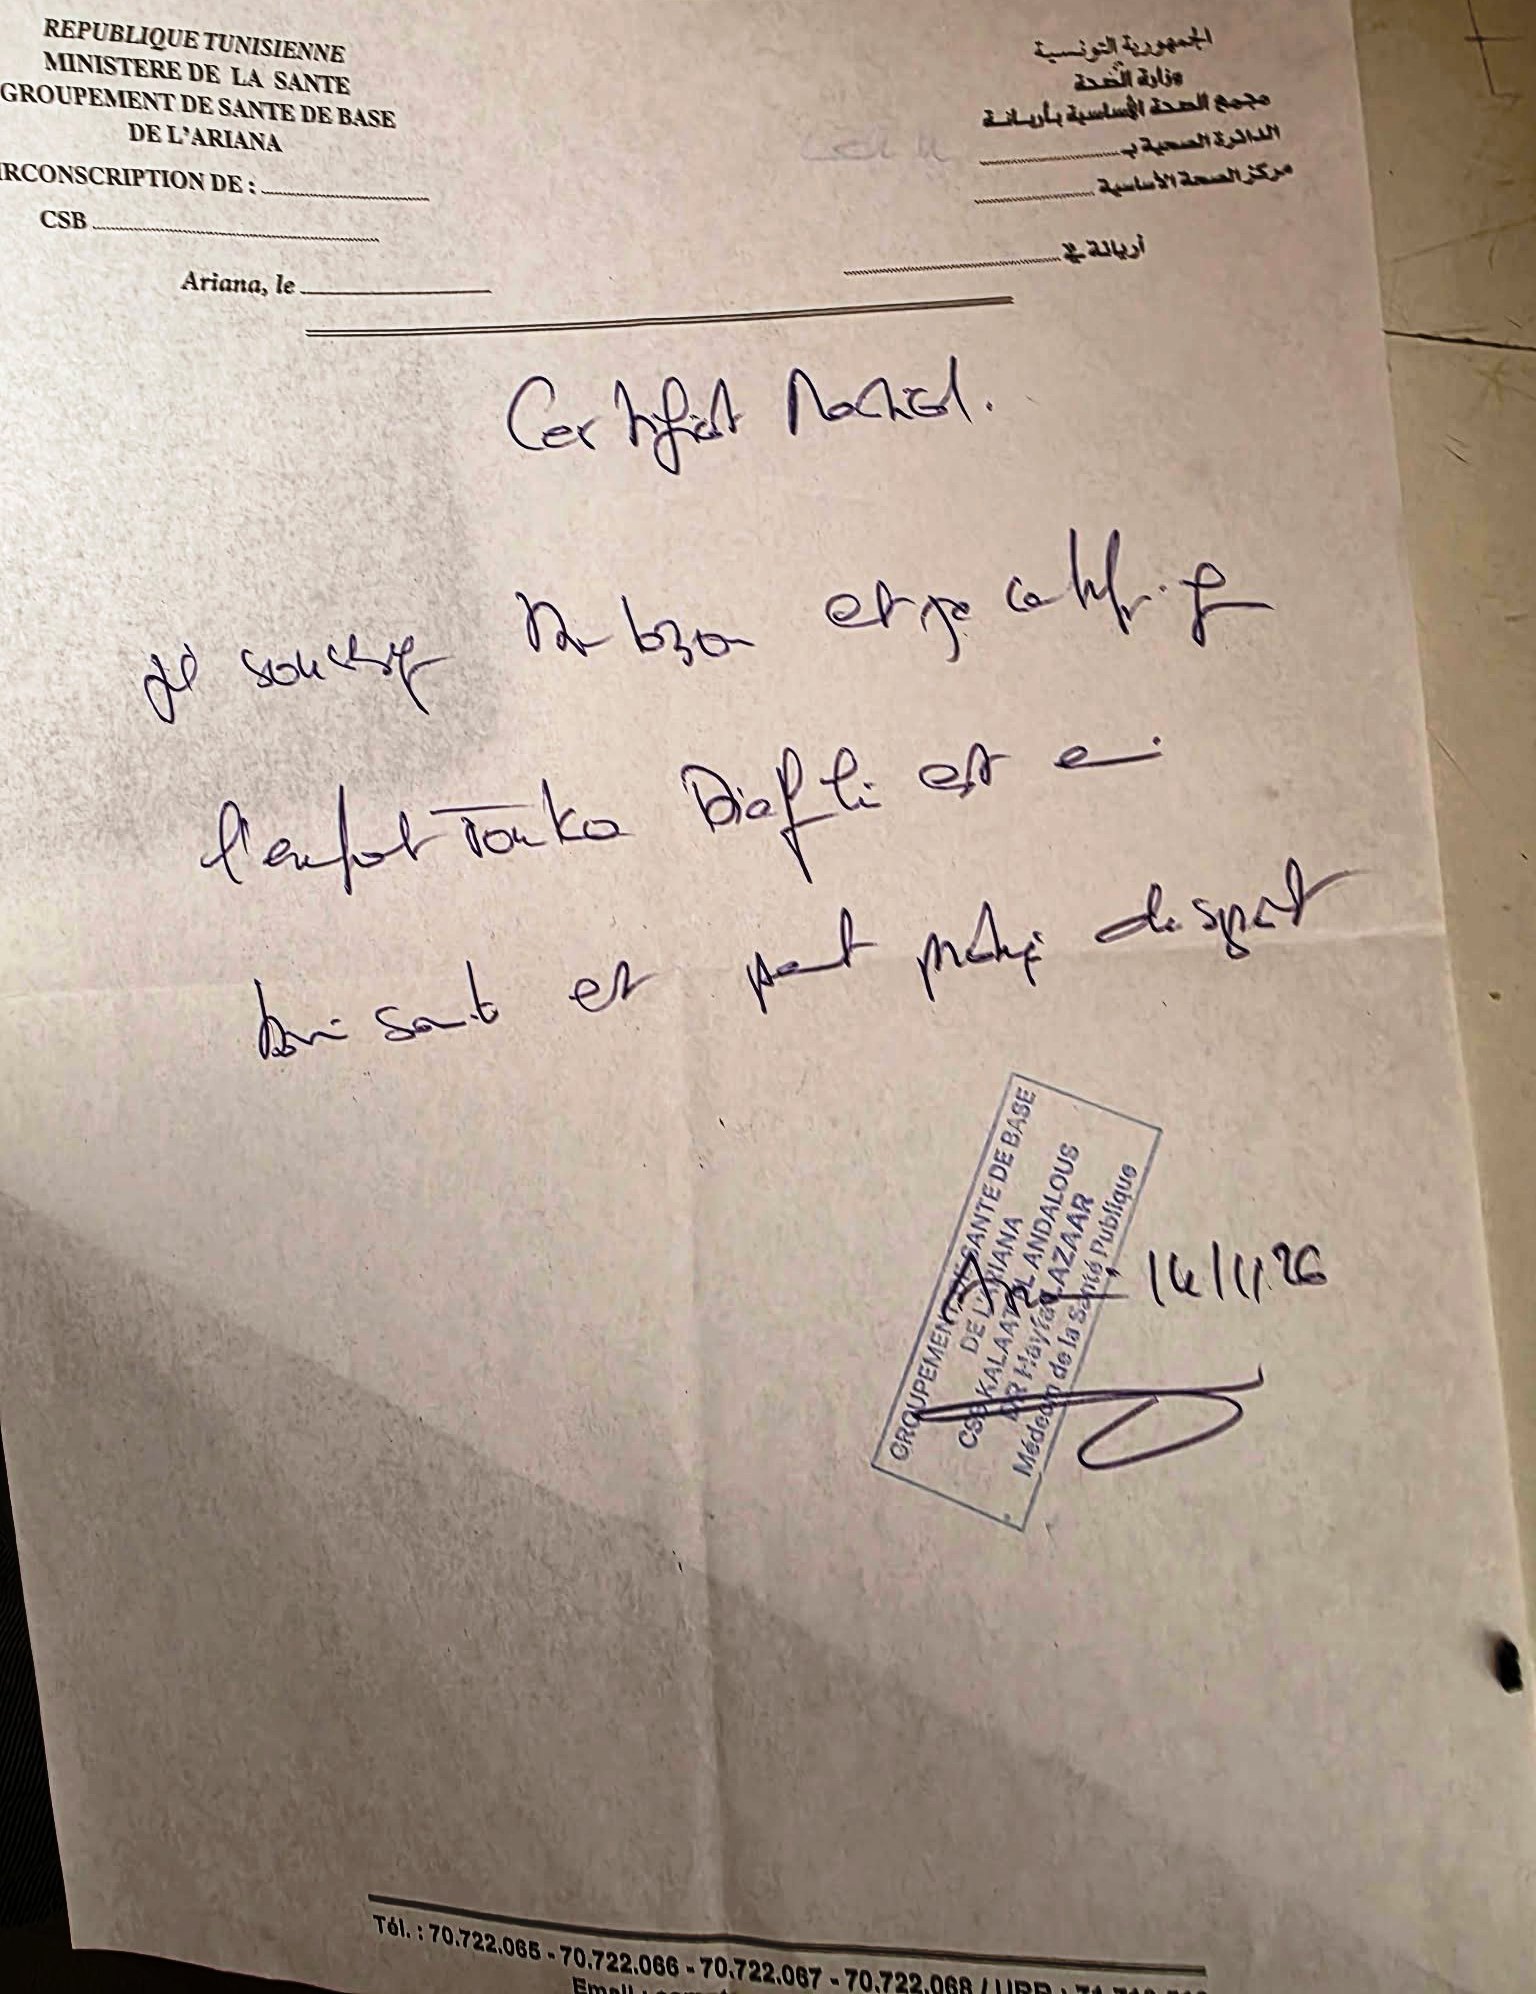 REPUBLIQUE TUNISIENNE
MINISTERE DE LA SANTE
GROUPEMENT DE SANTE DE BASE
DE L'ARIANA
IRCONSCRIPTION DE :
CSB
Ariana, le
الجمهورية التونسية
وزارة الصحة
مجمع الصحة الأساسية بأريانة
الدائرة الصحية بـ
مركز الصحة الأساسية
أريانة في
Certificat Médical.
Je soussigné Dr et je certifie que
l'enfant est en
bonne santé et peut pratiquer du sport
GROUPEMENT DE SANTE DE BASE
DE L'ARIANA
CSB KALAAT EL ANDALOUS
DR Hayfa LAZAAR
Médecin de la Santé Publique
14/1/26
Tél. : 70.722.065 - 70.722.066 - 70.722.067 - 70.722.068 /
Email :